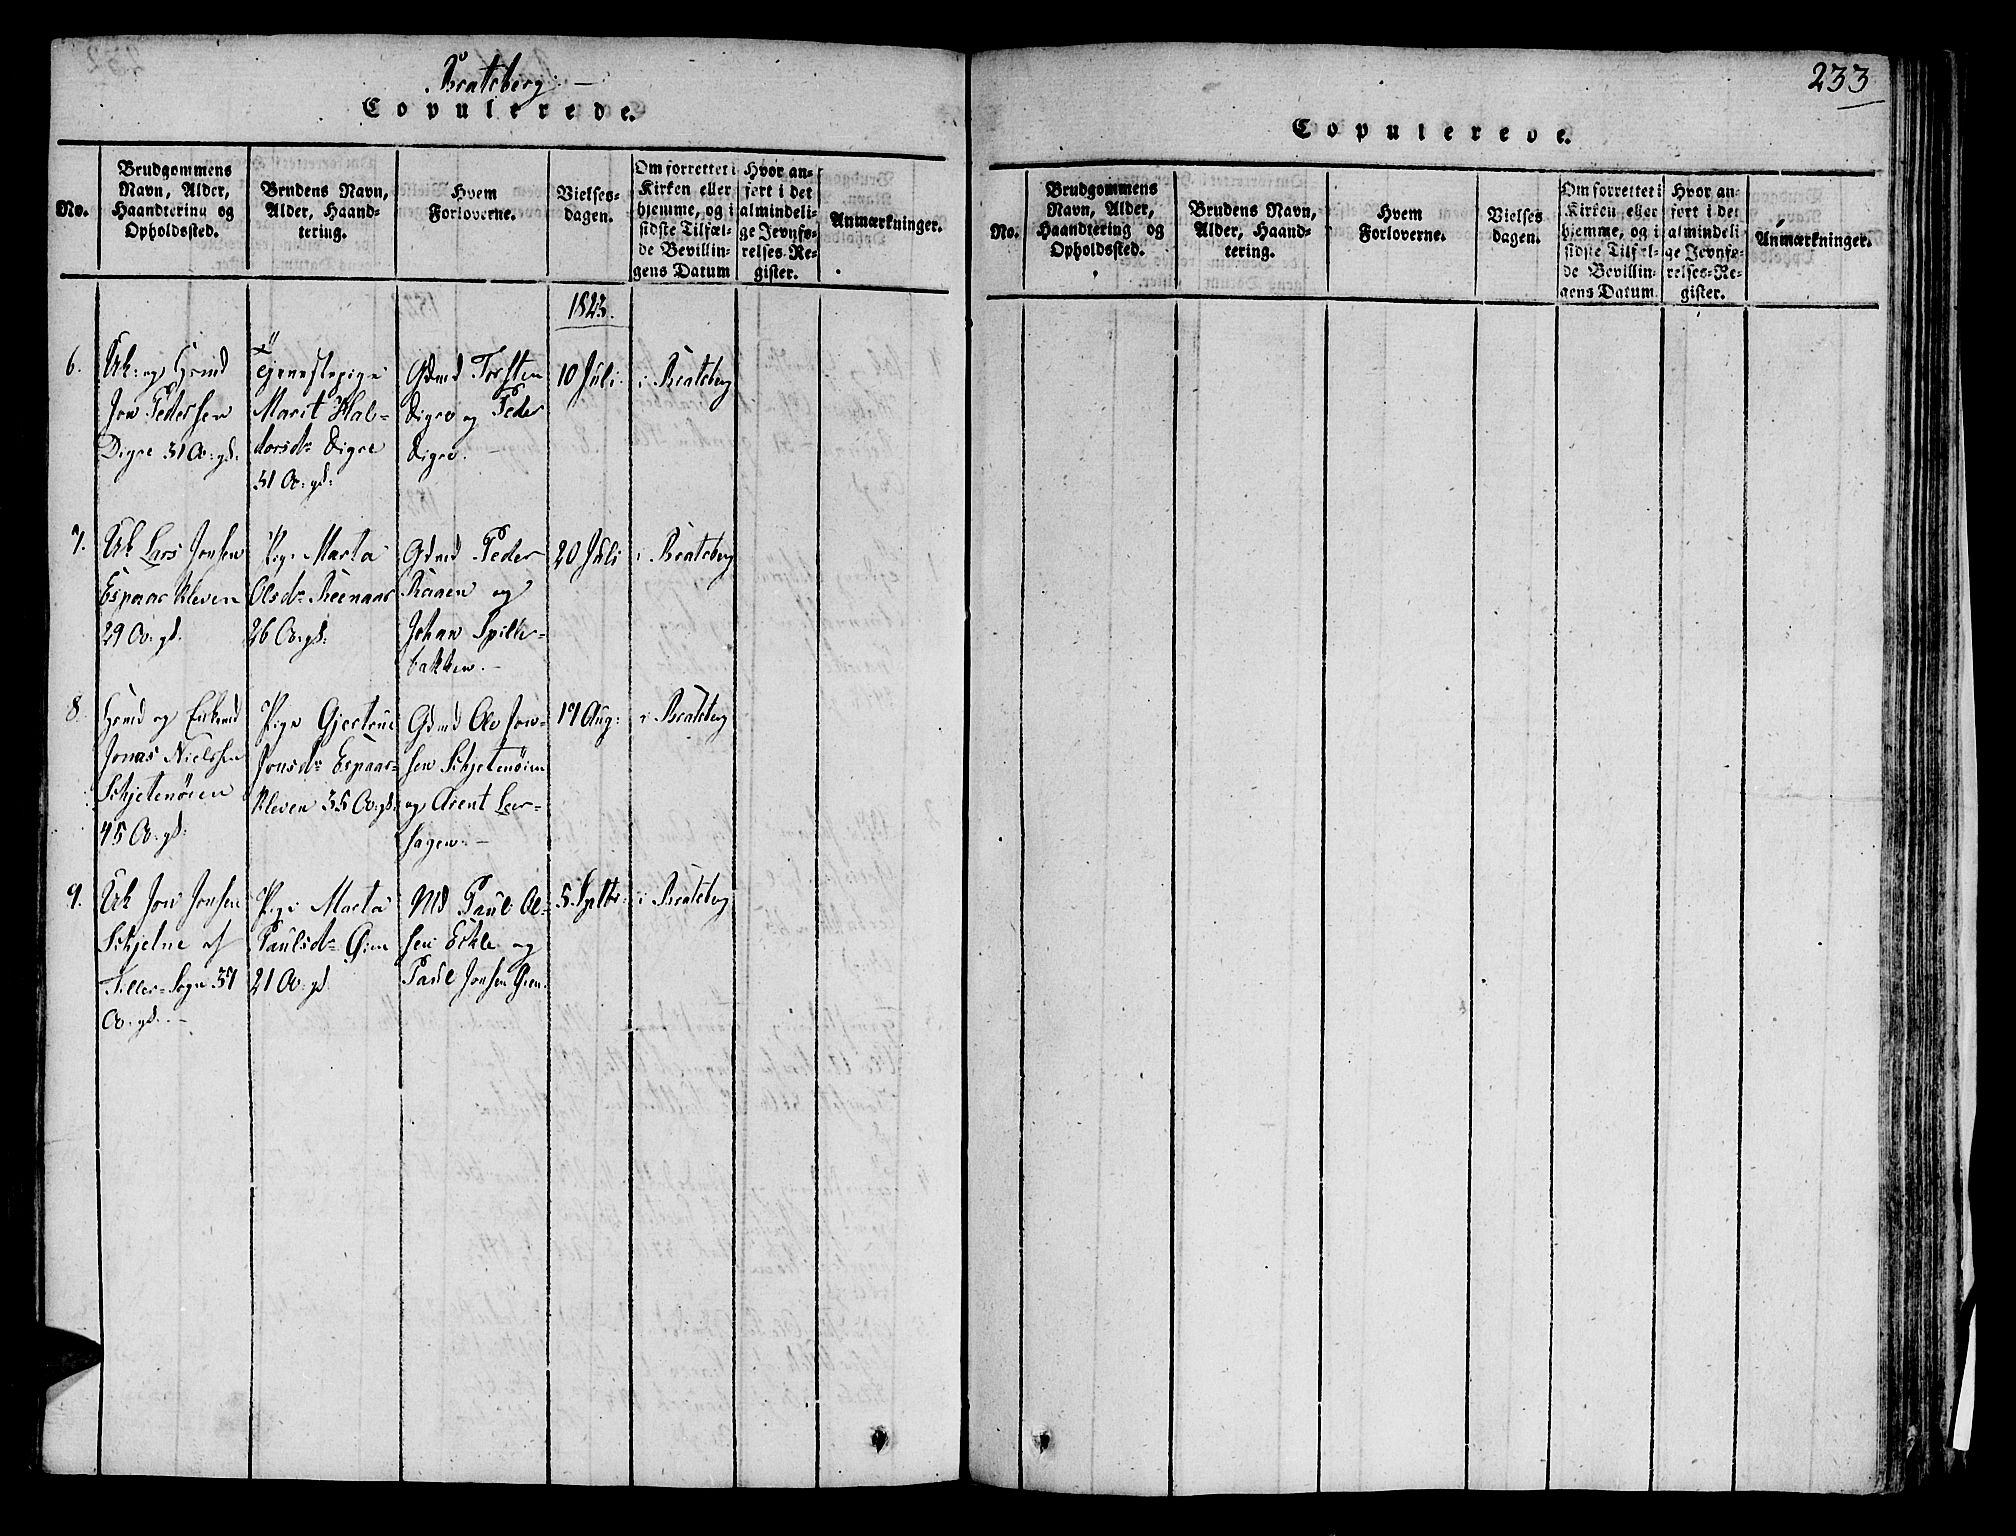 Bratsberg. —
Copulerede.
No.
Brudgommens
Navn, Alder,
Haandtering og
Opholdssted.
Brudens Navn,
Alder, Haand-
tering.
Hvem
Forloverne.
Vielses-
dagen.
Om forrettet i
Kirken eller
hjemme, og i
sidste Tilfæl-
de Bevillin-
gens Datum
Hvor an-
ført i det
almindeli-
ge Jevnfø-
relses-Re-
gister.
Anmærkninger.
1823.
6.
Uk: og Hsmd
Jon Pedersen
Digre 31 Av: gl:
Tjenestepige
Marit Hal-
dorsdr Digre
31 Av: gl:
Gdmd Torsten
Digre og Peder
Digre. —
10 Juli
i Bratsberg
7.
Uk Lars Jonsen
Espaas Kleven
29 Av: gl.
Pige Marta
Olsdr Reenaas
26 Av: gl:
Gdmd Peder
Raaen og
Johan Spille-
bakken. —
20 Juli
i Bratsberg
8.
Hsmd og Enkemd
Jonas Nielssen
Skjetenøien
45 Av: gl:
Pige Gjertrue
Jonsdr Espaas-
Kleven 35 Av: gl:
Gdmd Ole Jon-
sen Skjetenøien
og Arent Leer-
hagen. —
17 Aug:
i Bratsberg
9.
Uk Jon Jonsen
Skjetne af
Tiller-Sogn 37
Av: gl. —
Pige Marta
Paulsdr Øien
21 Av: gl
Md Paul Ol-
sen Eckle og
Paul Jonsen Øien.
5. Septbr:
i Bratsberg
233
Copulerede.
No.
Brudgommens
Navn, Alder,
Haandtering og
Opholdssted.
Brudens Navn,
Alder, Haand-
tering.
Hvem
Forloverne.
Vielses
dagen.
Om forrettet i
Kirken eller
hjemme, og i
sidste Tilfæl-
de Bevillin-
gens Datum
Hvor an-
ført i det
almindeli
ge Jevnfø-
relses-Re-
gister.
Anmærkninger.